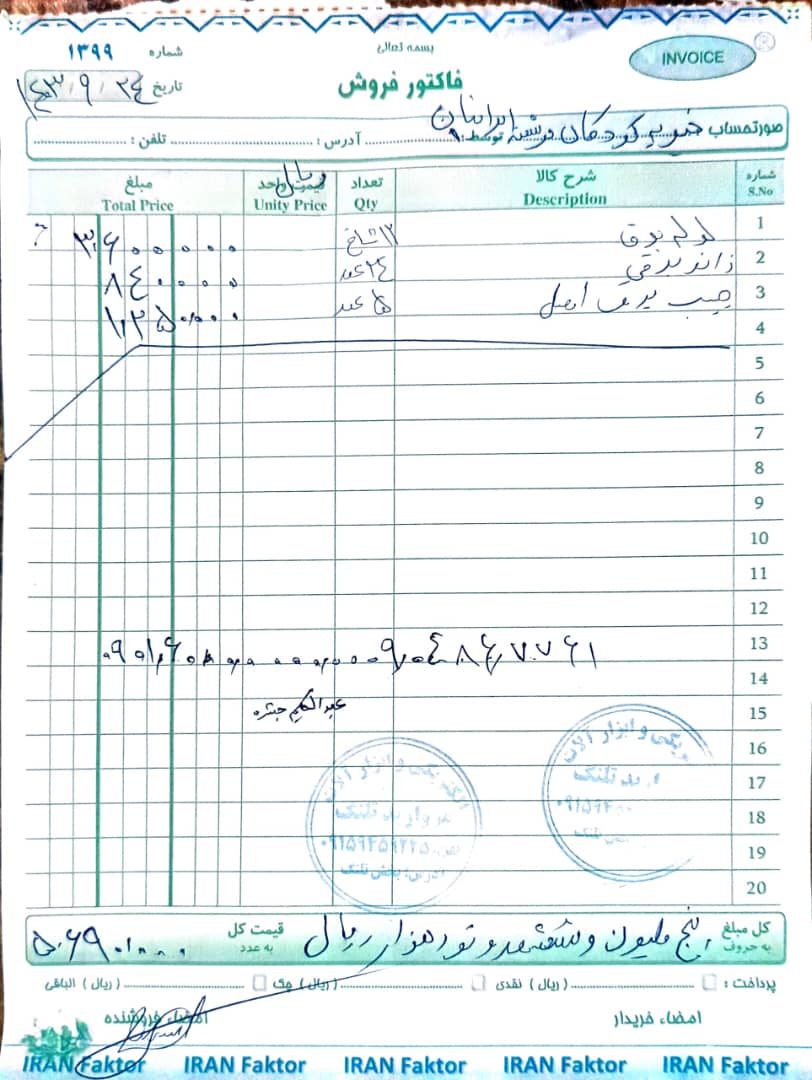 بسمه تعالی
INVOICE
شماره ۱۳۹۹
فاکتور فروش
تاریخ ۱۴۰۳/۹/۲۴
صورتحساب کودکان توسط: آدرس: تلفن:
شماره S.No شرح کالا Description تعداد Qty قیمت واحد Unity Price ریال مبلغ Total Price
1 لوله برق ۱۲ شاخ ۳,۶۰۰,۰۰۰
2 زانو برقی ۲۴ عدد ۸۴۰,۰۰۰
3 چسب برق اصل ۵ عدد ۱,۲۵۰,۰۰۰
4
5
6
7
8
9
10
11
12
13
14
15 عبدالکریم
16
17
18
19
20
کل مبلغ به حروف پنج ملیون و ششصد و نود هزار ریال قیمت کل به عدد ۵,۶۹۰,۰۰۰
پرداخت: نقدی (ریال) چک (ریال) الباقی (ریال)
امضاء خریدار امضاء فروشنده
IRAN Faktor IRAN Faktor IRAN Faktor IRAN Faktor IRAN Faktor